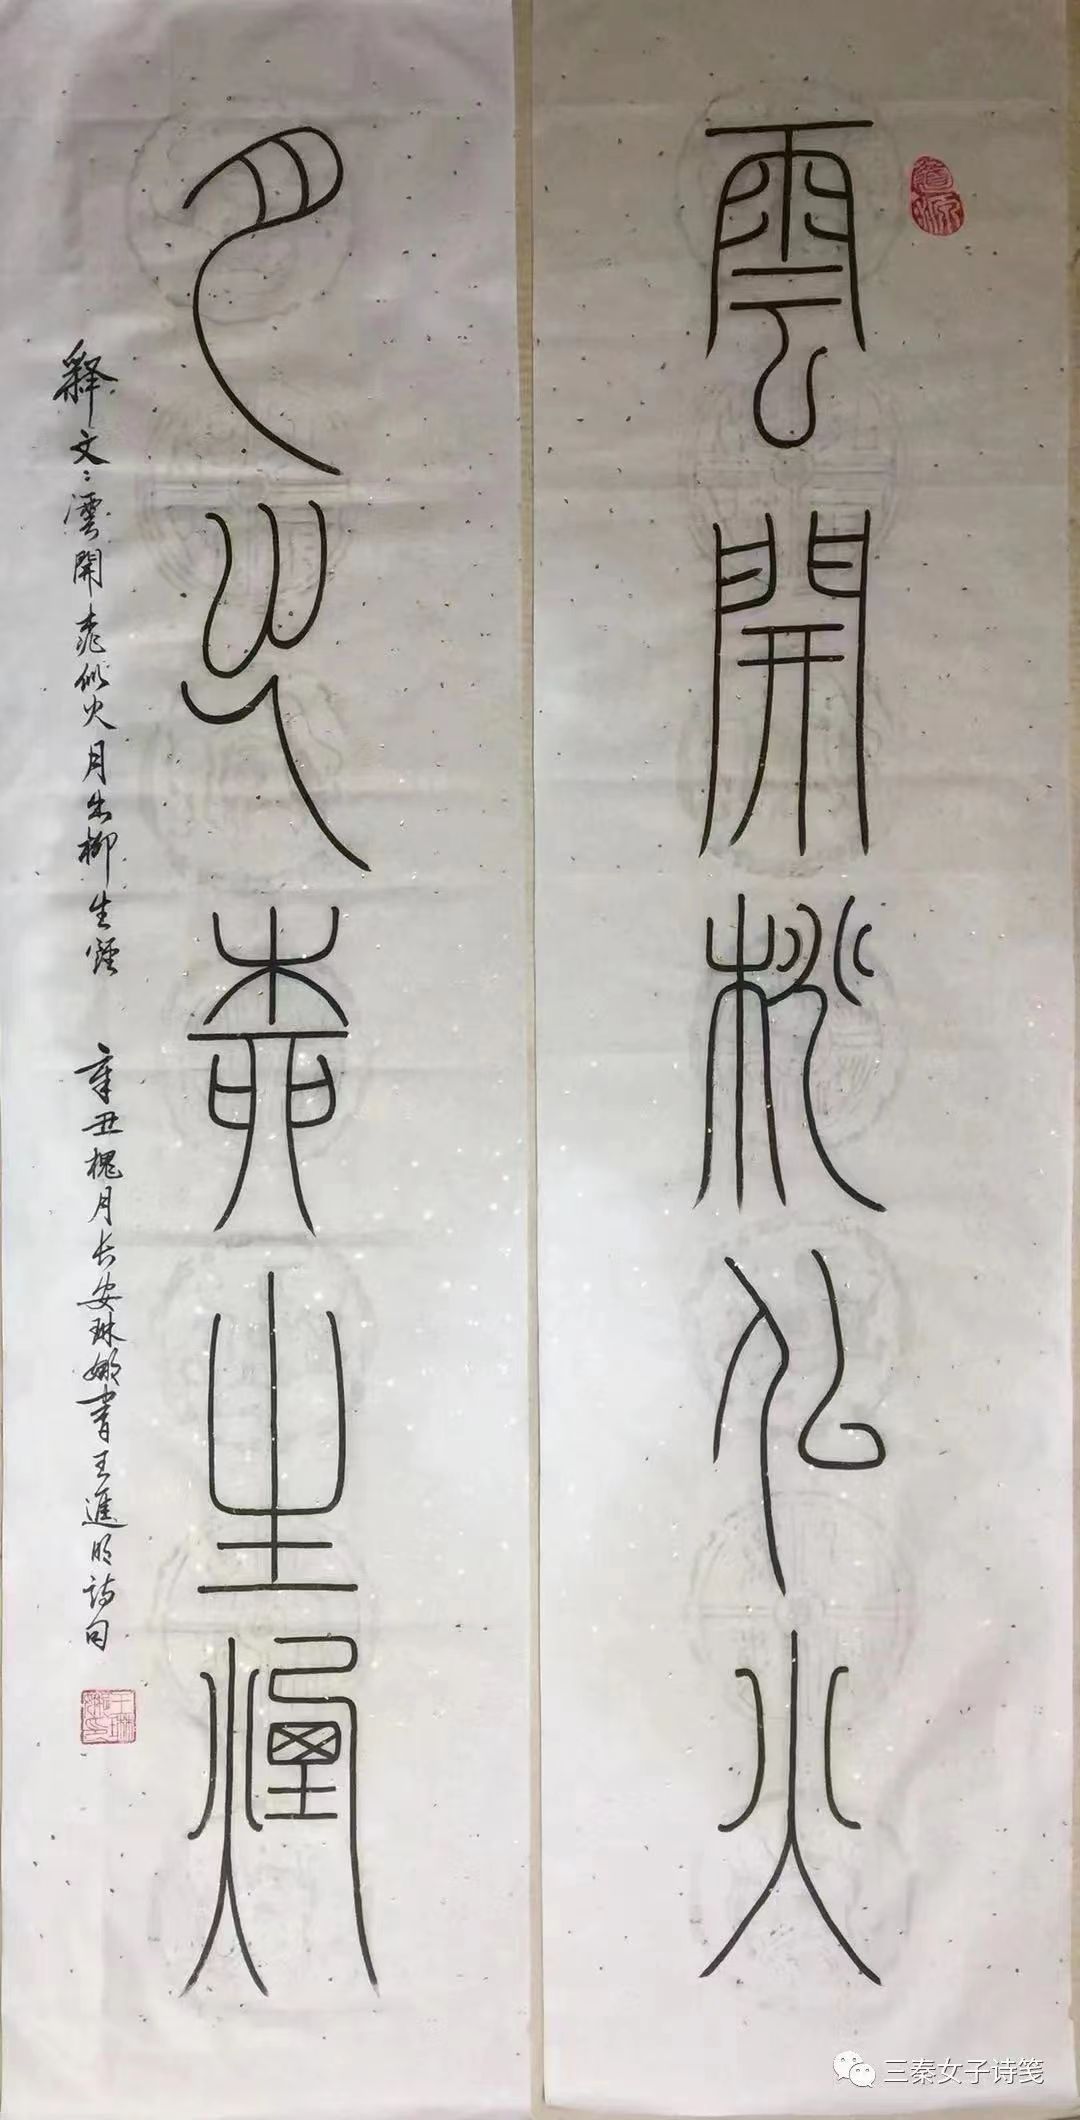 雲開桃似火
月出柳生煙
释文：雲開桃似火月出柳生煙
辛丑槐月长安琳娜書王進明诗句
道源
三秦女子诗笺